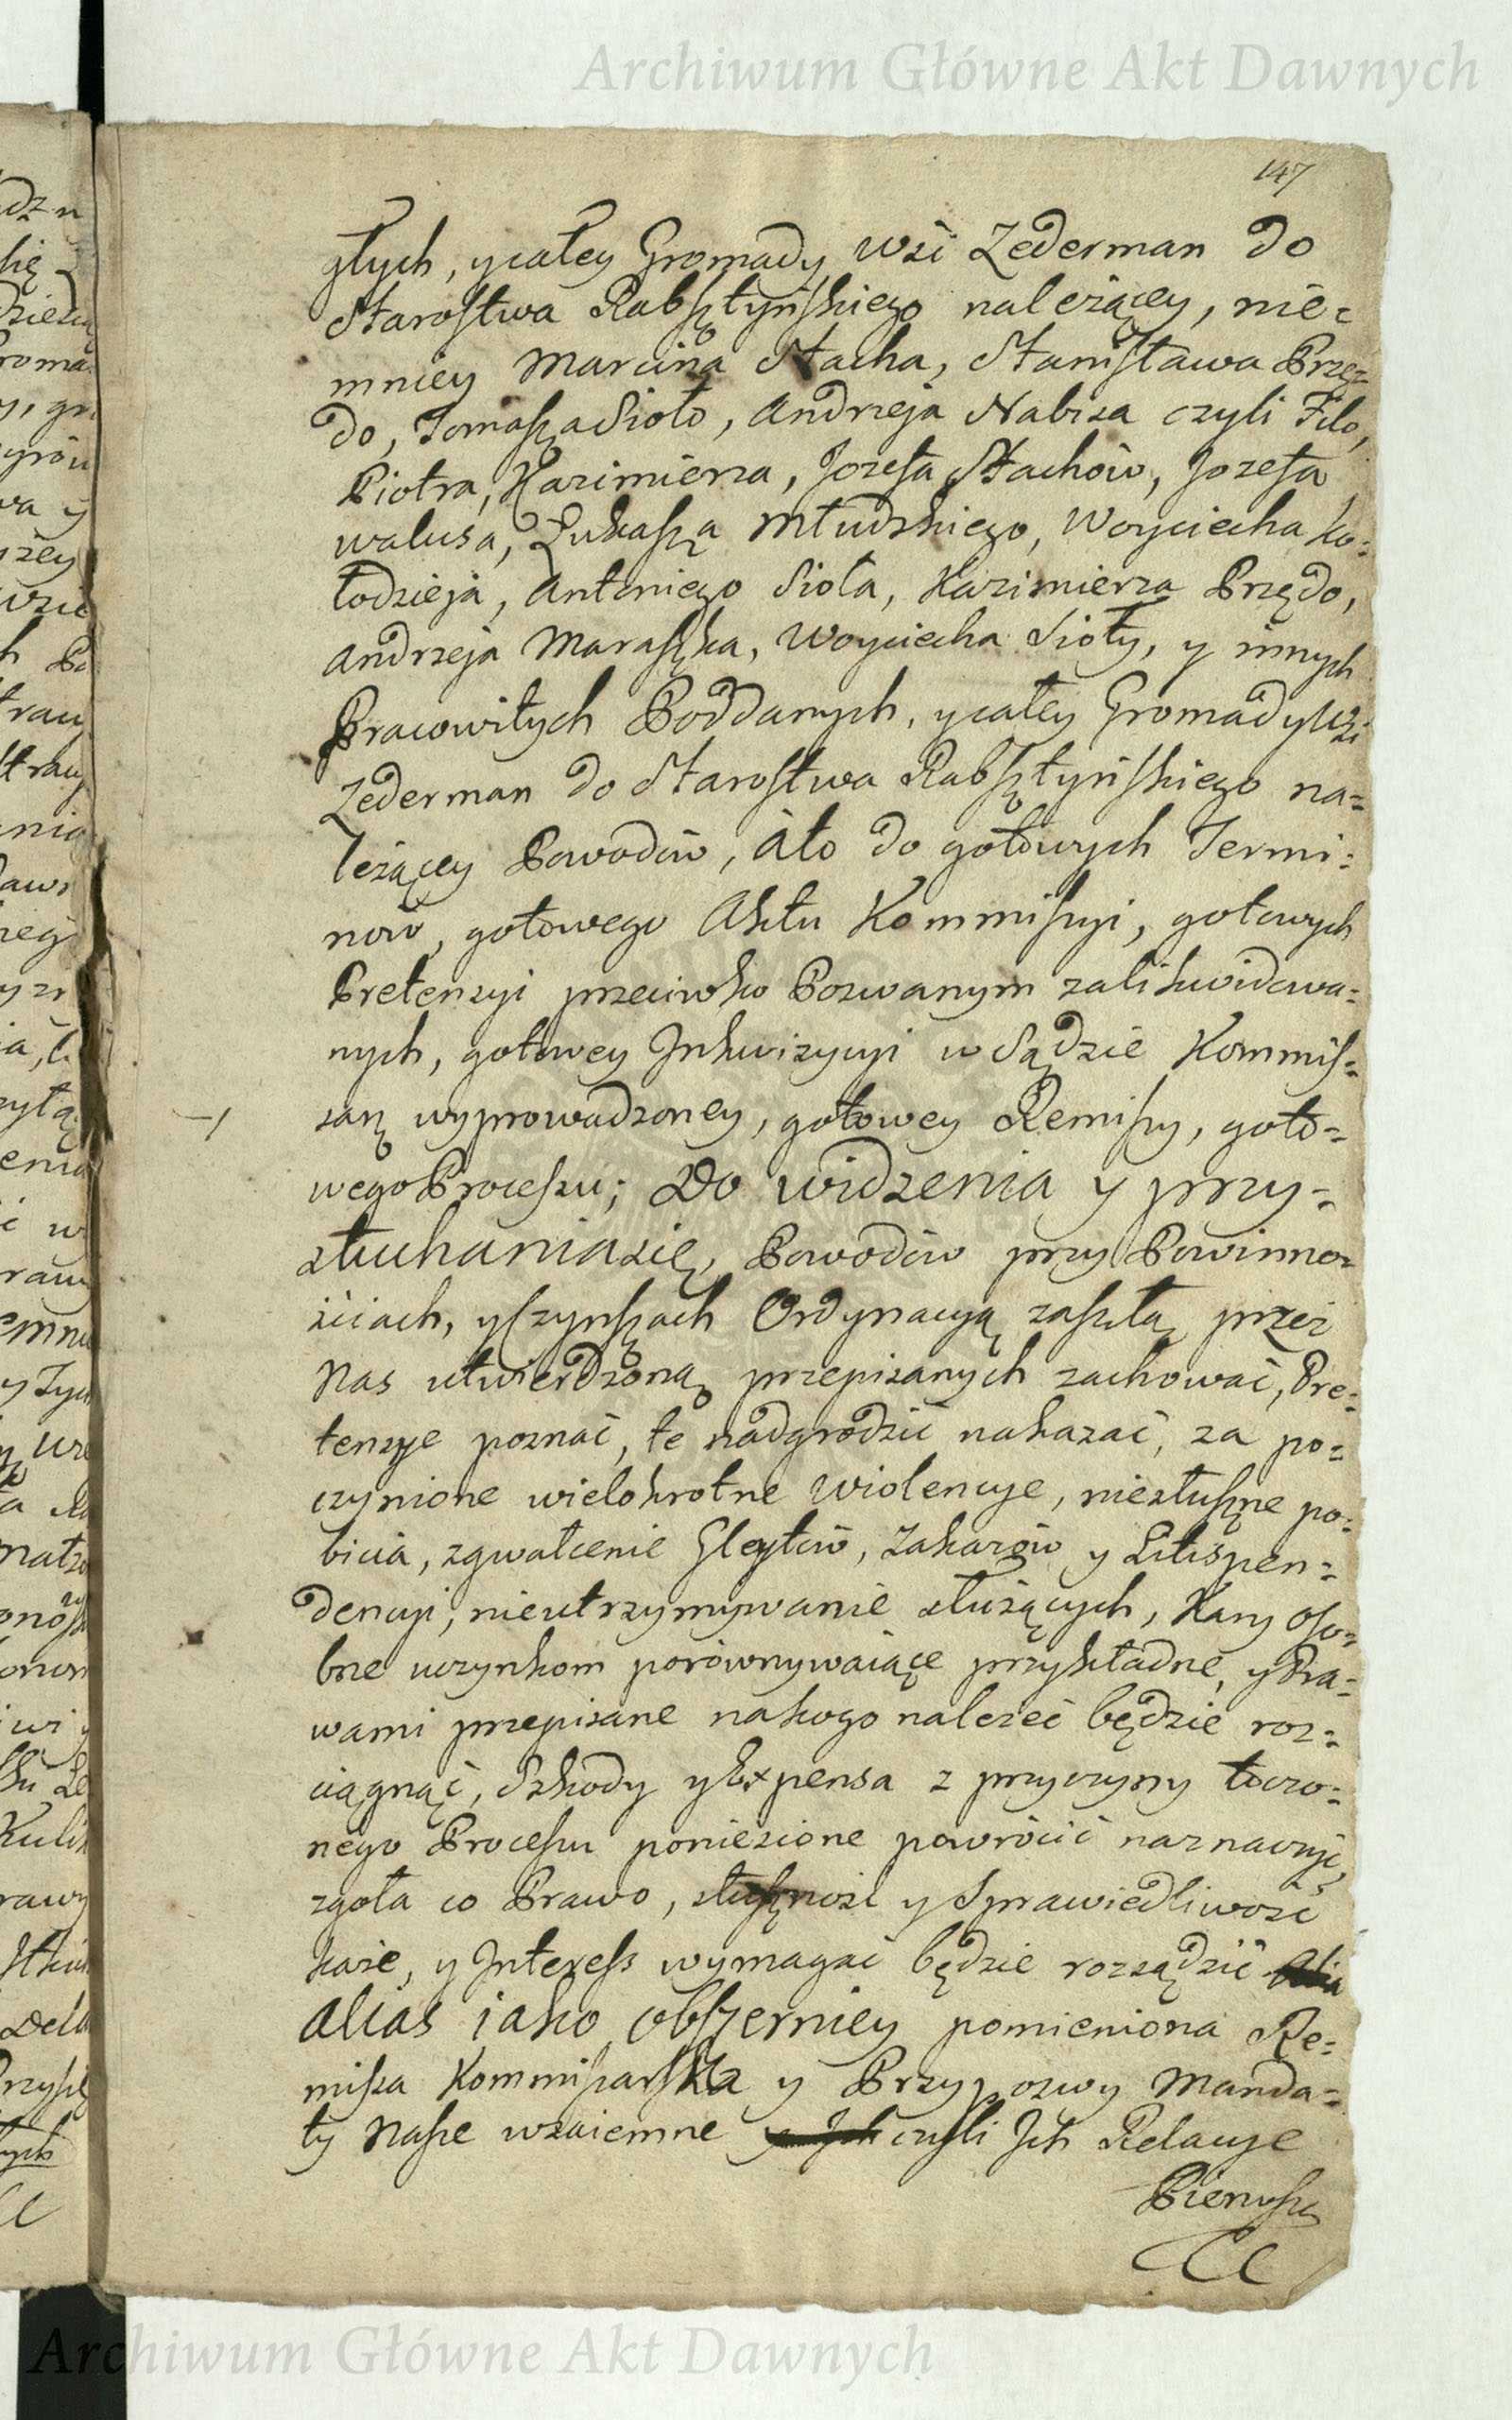 Archiwum Główne Akt Dawnych
147
głych, y całey Gromady wsi Zederman do
Starostwa Rabsztyńskiego należącey, nie=
mniey Marcina Stacha, Stanisława Przę=
do, Tomasza Sioło, Andrzeja Nabisa czyli Filo,
Piotra, Kazimierza, Jozefa Stachów, Jozefa
Walusa, Łukasza Młudzkiego, Woyciecha Ko=
łodzieja, Antoniego Sioła, Kazimierza Przędo,
Andrzeja Maraszka, Woyciecha Sioły, y innych
Pracowitych Poddanych, y całey Gromady Wsi
Zederman do Starostwa Rabsztyńskiego na=
leżącey Powodów, Ato do gotowych Termi=
nów, gotowego Aktu Kommissyi, gotowych
Pretensyi przeciwko Pozwanym zalikwidowa=
nych, gotowey Inkwizycyi w Sądzie Kommis=
sarz wyprowadzoney, gotowey Remissy, goto=
wego Processu; Do widzenia y przy=
słuchania się, Powodów przy Powinno=
ściach, y Czynszach Ordynacyą zaszłą przez
Nas utwierdzoną przepisanych zachować, Pre=
tensye poznać, te nadgrodzić nakazać, za po=
czynione wielokrotne wiolencye, niesłuszne po=
bicia, zgwałcenie Gleytów, Zakazów y Litispen=
dencyi, nieutrzymywanie służących, Kary oso=
bne uczynkom porównywaiące przykładne, y Pra=
wami przepisane na kogo należeć będzie roz=
ciągnąć, Szkody y Expensa z przyczyny toczo=
nego Processu poniesione powrócić naznaczyć,
zgoła co Prawo, słuszność y Sprawiedliwość
każe, y Interess wymagać będzie rozsądzić
alias iako obszerniey pomieniona Re=
missa Kommissarska y Przypozwy Manda=
ty Nasze wzaiemne czyli Jch Relacye
Pierwsze
Archiwum Główne Akt Dawnych